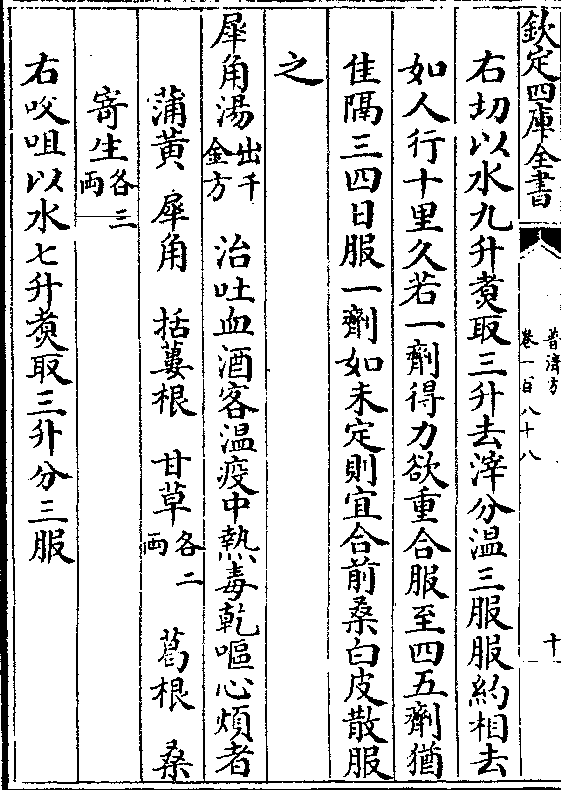 欽定四庫全書
普濟方
卷一百八十八
十
右切以水九升煑取三升去滓分温三服服約相去
如人行十里久若一劑得力欲重合服至四五劑猶
佳隔三四日服一劑如未定則宜合前桑白皮散服
之
犀角湯出千金方 治吐血酒客温疫中熱毒乾嘔心煩者
蒲黄 犀角 括蔞根 甘草各二兩 葛根 桑
寄生各三兩
右㕮咀以水七升煑取三升分三服